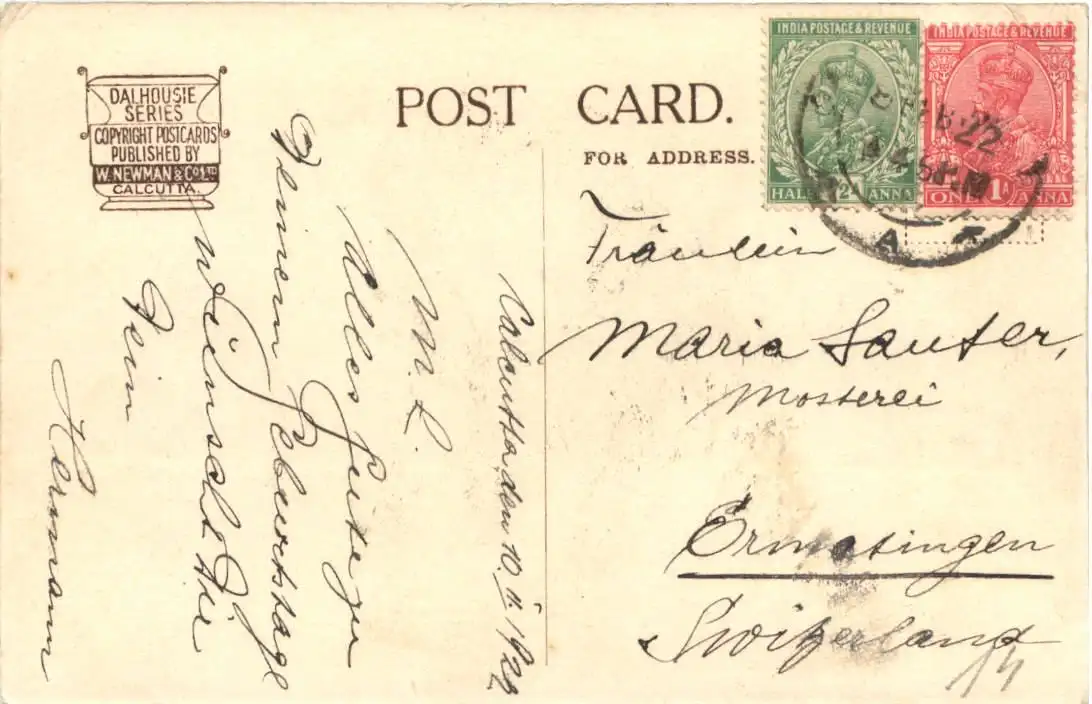 DALHOUSIE
SERIES
COPYRIGHT POSTCARDS
PUBLISHED BY
W. NEWMAN & Co LTD
CALCUTTA.
POST CARD.
FOR ADDRESS.
INDIA POSTAGE & REVENUE
HALF ½ ANNA
INDIA POSTAGE & REVENUE
ONE 1A ANNA
22
Calcutta, den 10. II. 1922
M. L.
Alles Gute zu
Deinem Geburtstage
wünscht Dir
Dein
Hermann
Fräulein
Maria Sauter,
Mosterei
Ermatingen
Switzerland